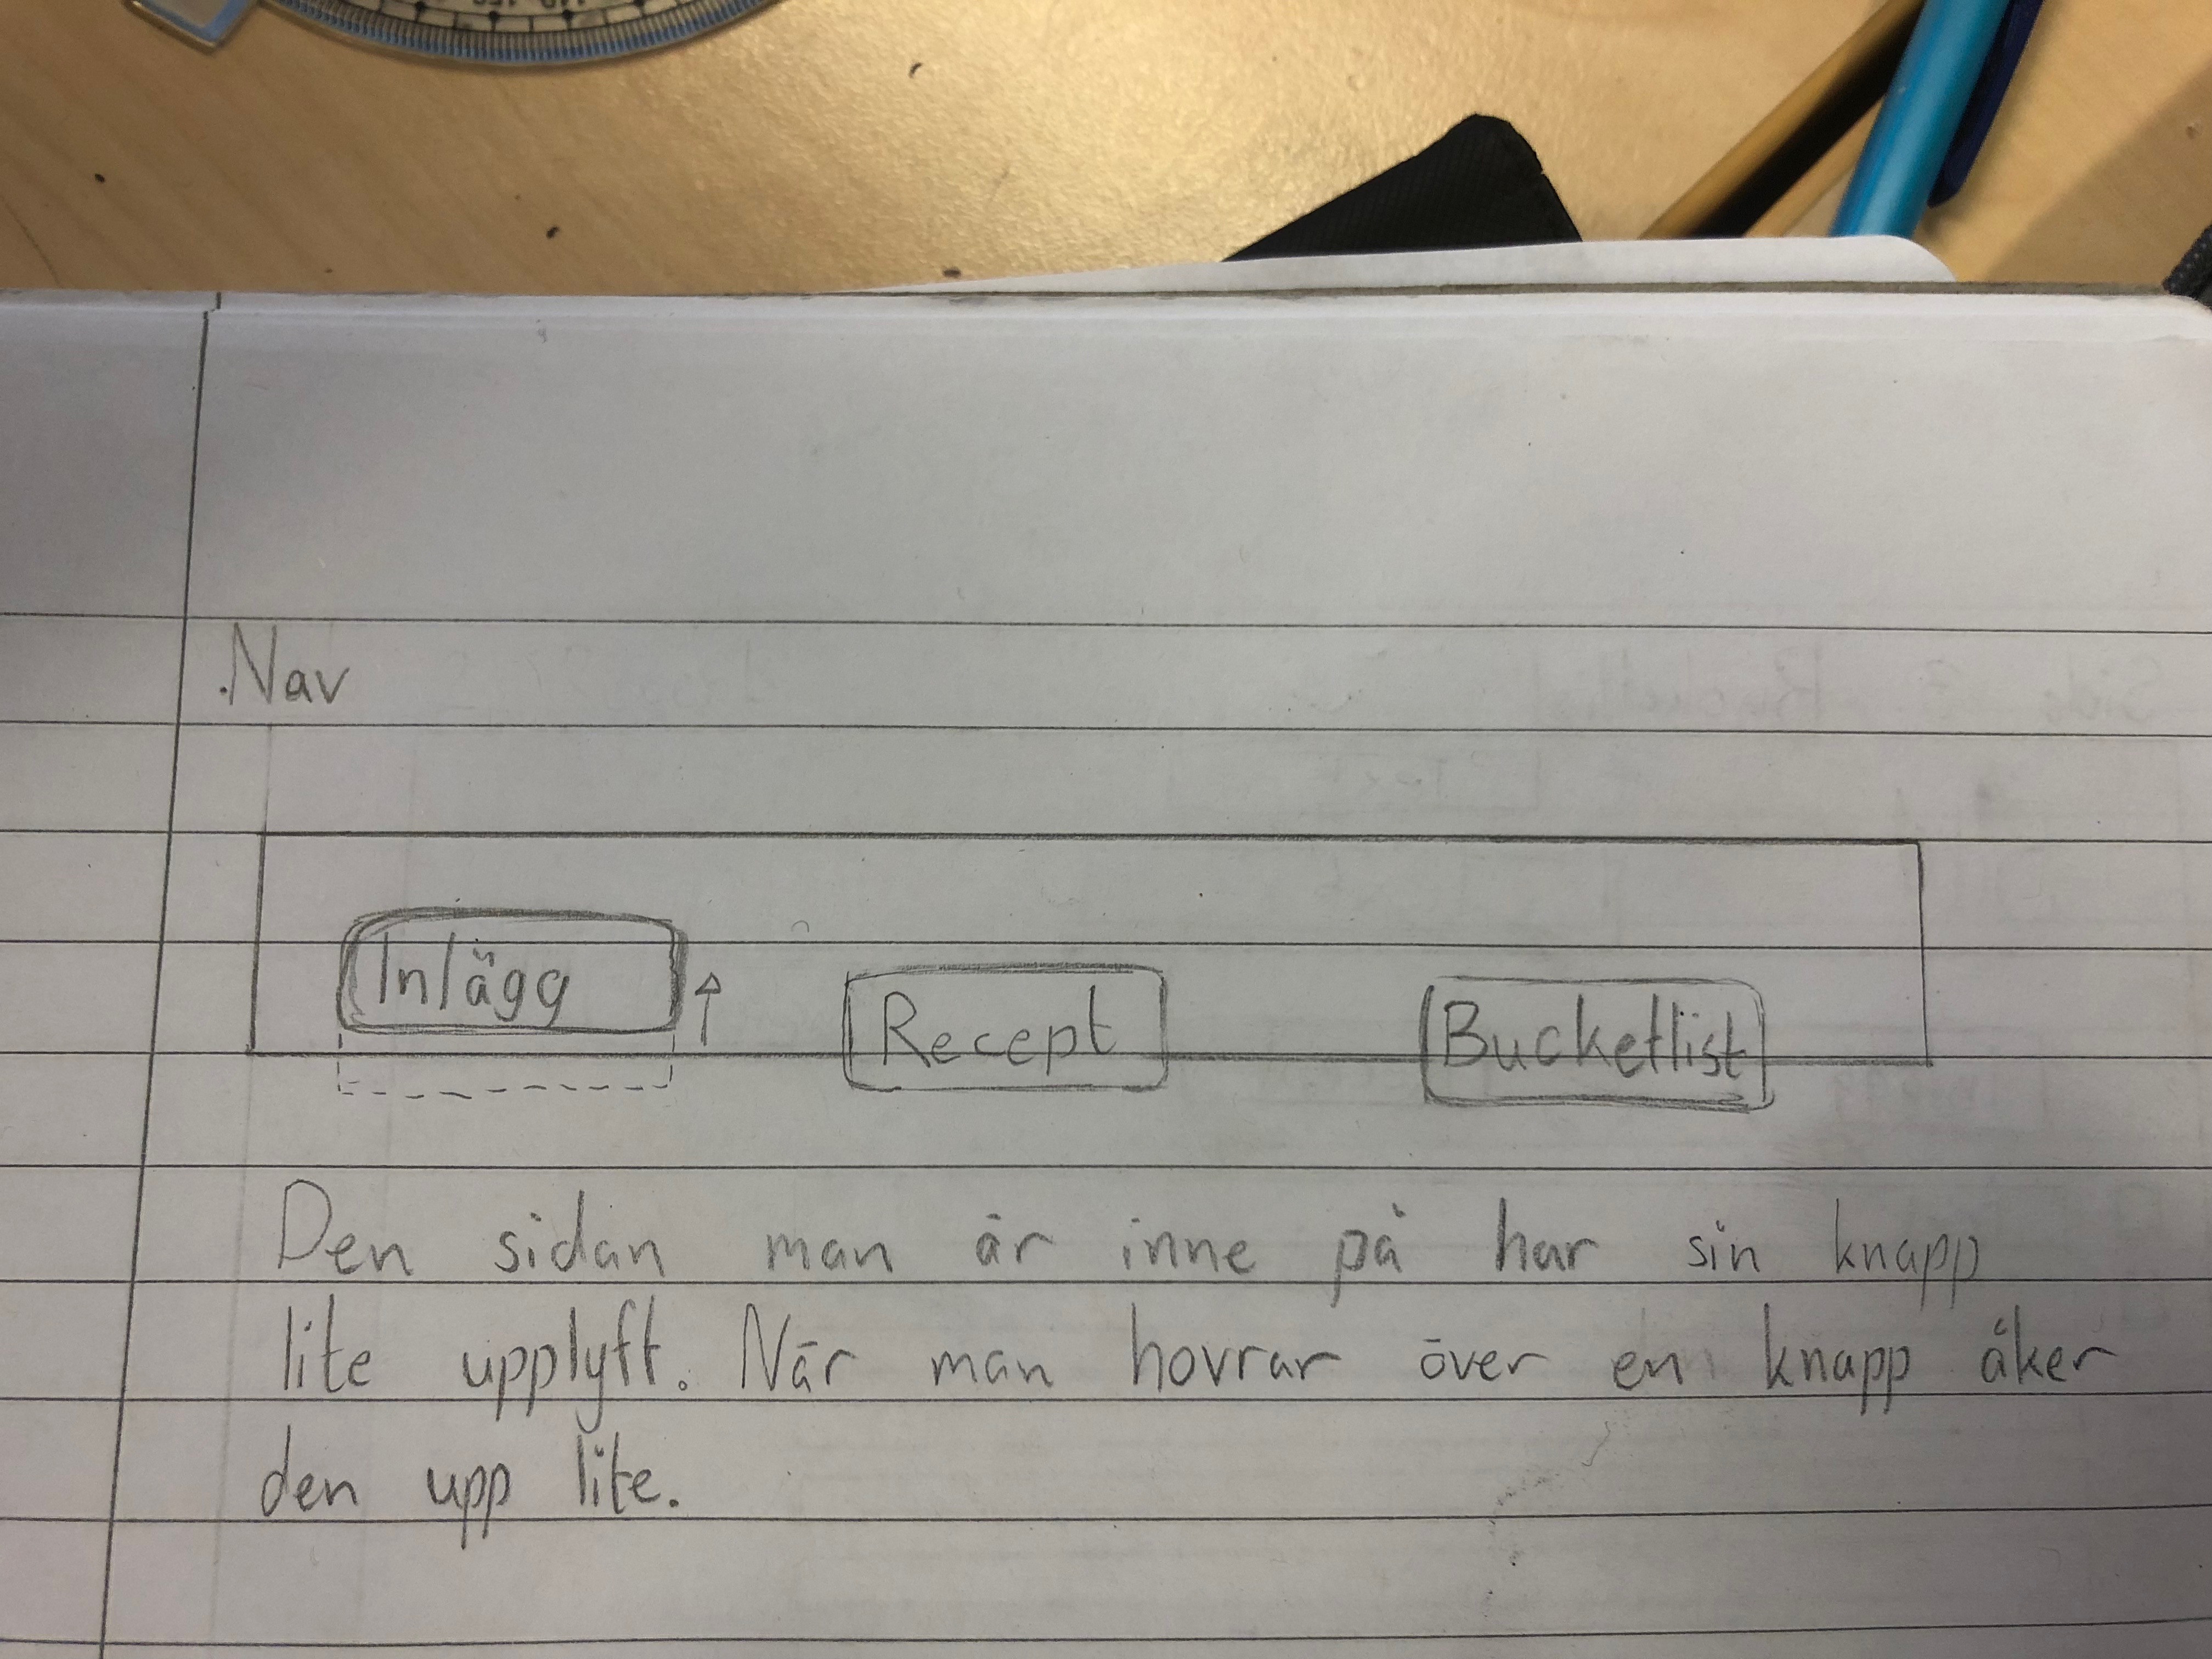 .Nav
Inlägg
Recept
Bucketlist
Den sidan man är inne på har sin knapp
lite upplyft. När man hovrar över en knapp åker
den upp lite.